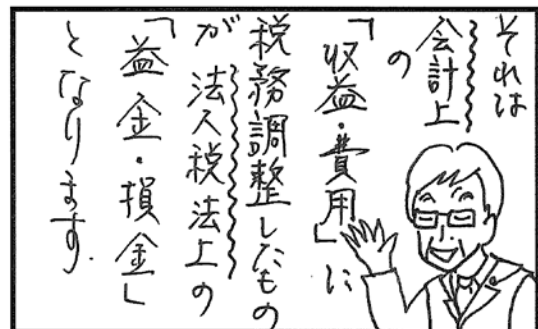 それは
会計上
の
「収益・費用」に
税務調整したもの
が法人税法上の
「益金・損金」
となります.